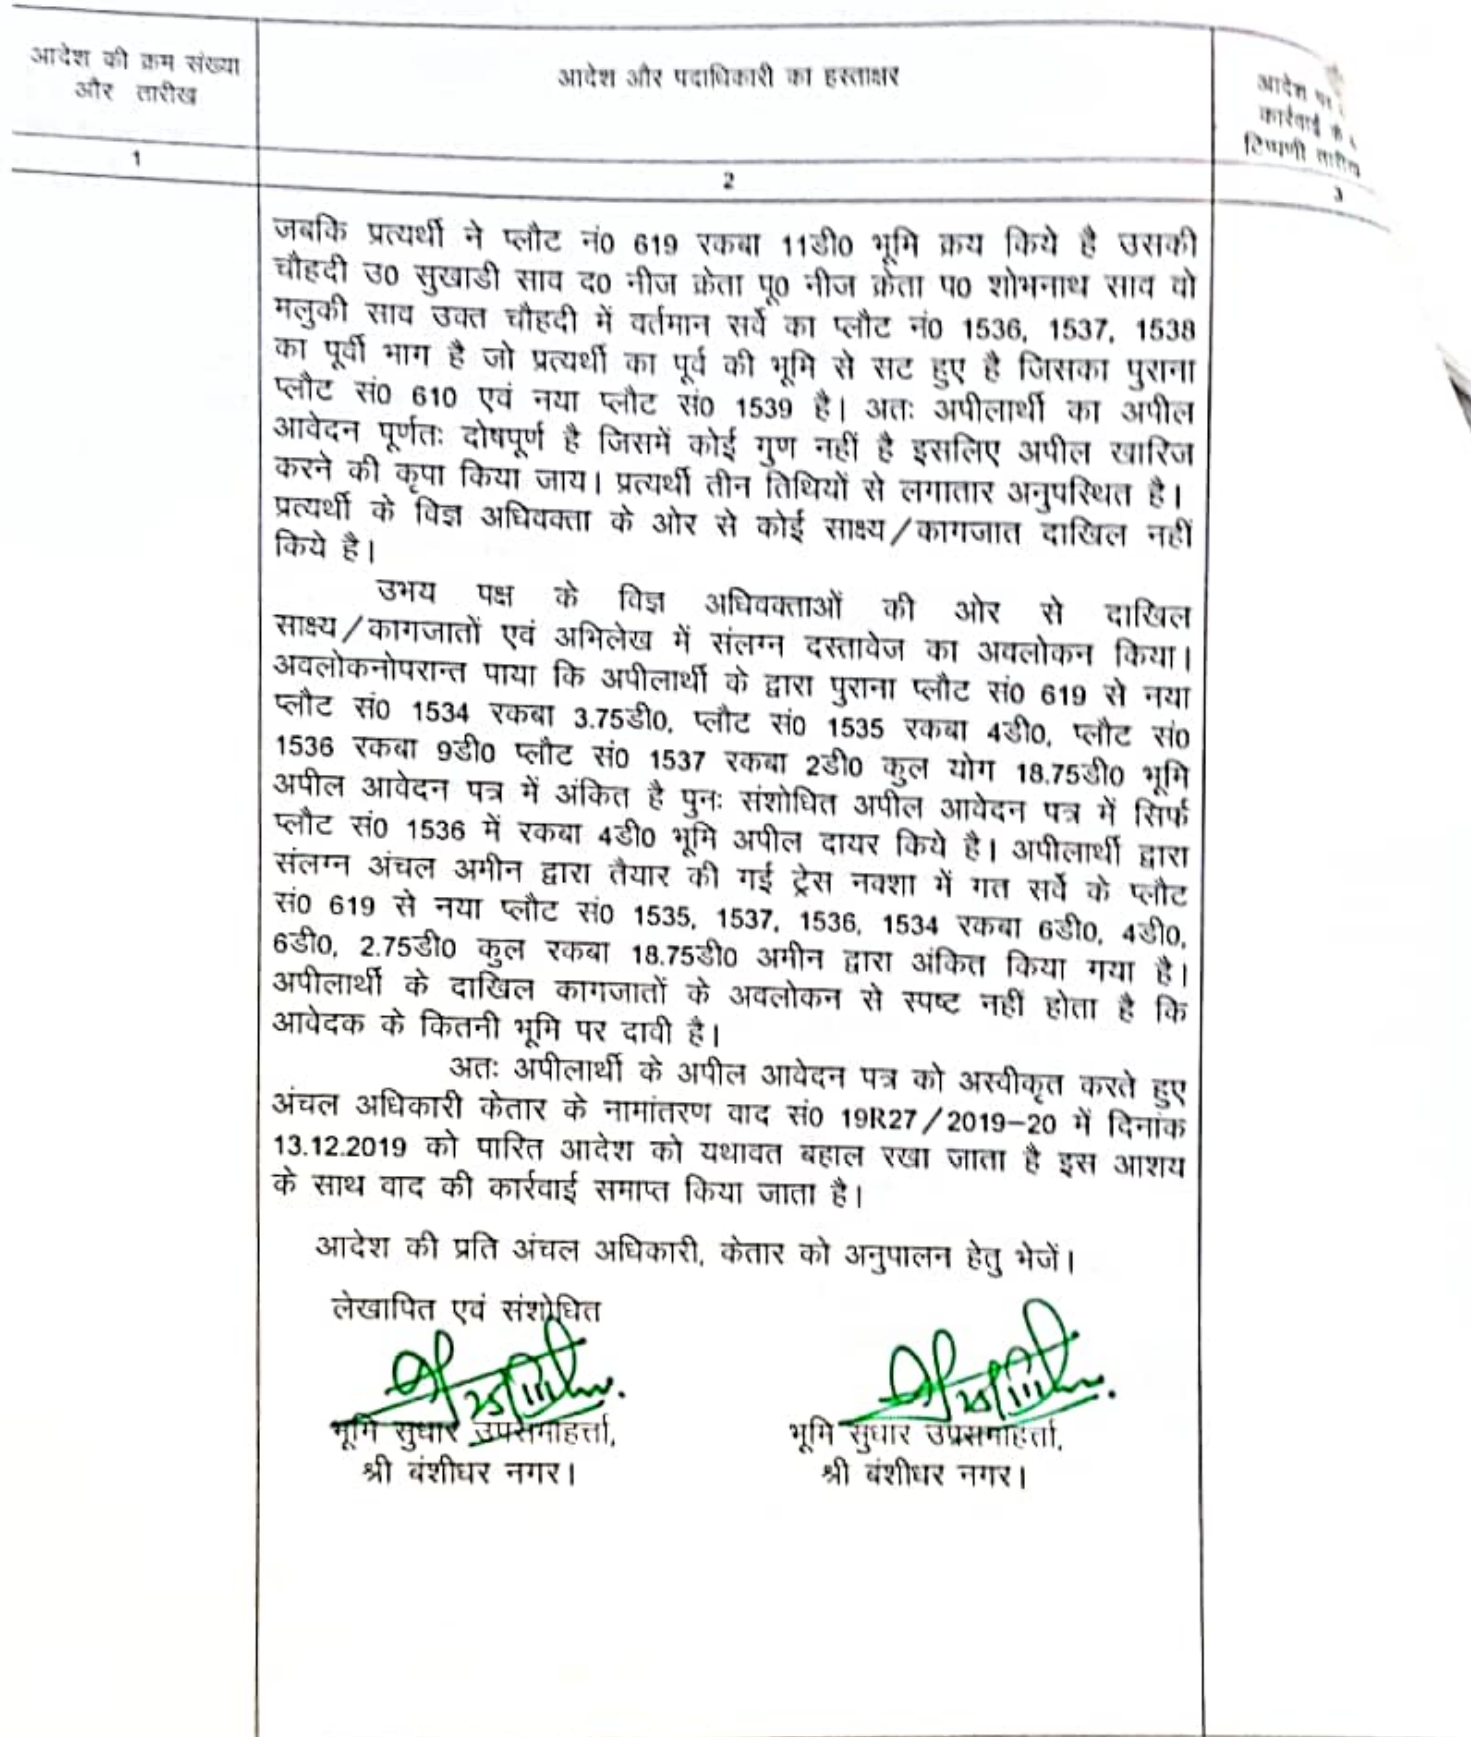 आदेश की क्रम संख्या
और तारीख
आदेश और पदाधिकारी का हस्ताक्षर
आदेश पर
कार्रवाई के
टिप्पणी तारीख
1
2
3
जबकि प्रत्यर्थी ने प्लौट नं0 619 रकबा 11डी0 भूमि क्रय किये है उसकी
चौहदी उ0 सुखाडी साव द0 नीज क्रेता पू0 नीज क्रेता प0 शोभनाथ साव वो
मलुकी साव उक्त चौहदी में वर्तमान सर्वे का प्लौट नं0 1536, 1537, 1538
का पूर्वी भाग है जो प्रत्यर्थी का पूर्व की भूमि से सट हुए है जिसका पुराना
प्लौट सं0 610 एवं नया प्लौट सं0 1539 है। अतः अपीलार्थी का अपील
आवेदन पूर्णतः दोषपूर्ण है जिसमें कोई गुण नहीं है इसलिए अपील खारिज
करने की कृपा किया जाय। प्रत्यर्थी तीन तिथियों से लगातार अनुपस्थित है।
प्रत्यर्थी के विज्ञ अधिवक्ता के ओर से कोई साक्ष्य/कागजात दाखिल नहीं
किये है।
उभय पक्ष के विज्ञ अधिवक्ताओं की ओर से दाखिल
साक्ष्य/कागजातों एवं अभिलेख में संलग्न दस्तावेज का अवलोकन किया।
अवलोकनोपरान्त पाया कि अपीलार्थी के द्वारा पुराना प्लौट सं0 619 से नया
प्लौट सं0 1534 रकबा 3.75डी0, प्लौट सं0 1535 रकबा 4डी0, प्लौट सं0
1536 रकबा 9डी0 प्लौट सं0 1537 रकबा 2डी0 कुल योग 18.75डी0 भूमि
अपील आवेदन पत्र में अंकित है पुनः संशोधित अपील आवेदन पत्र में सिर्फ
प्लौट सं0 1536 में रकबा 4डी0 भूमि अपील दायर किये है। अपीलार्थी द्वारा
संलग्न अंचल अमीन द्वारा तैयार की गई ट्रेस नक्शा में गत सर्वे के प्लौट
सं0 619 से नया प्लौट सं0 1535, 1537, 1536, 1534 रकबा 6डी0, 4डी0,
6डी0, 2.75डी0 कुल रकबा 18.75डी0 अमीन द्वारा अंकित किया गया है।
अपीलार्थी के दाखिल कागजातों के अवलोकन से स्पष्ट नहीं होता है कि
आवेदक के कितनी भूमि पर दावी है।
अतः अपीलार्थी के अपील आवेदन पत्र को अस्वीकृत करते हुए
अंचल अधिकारी केतार के नामांतरण वाद सं0 19R27/2019-20 में दिनांक
13.12.2019 को पारित आदेश को यथावत बहाल रखा जाता है इस आशय
के साथ वाद की कार्रवाई समाप्त किया जाता है।
आदेश की प्रति अंचल अधिकारी, केतार को अनुपालन हेतु भेजें।
लेखापित एवं संशोधित
भूमि सुधार उपसमाहर्त्ता,
श्री बंशीधर नगर।
भूमि सुधार उपसमाहर्त्ता,
श्री बंशीधर नगर।